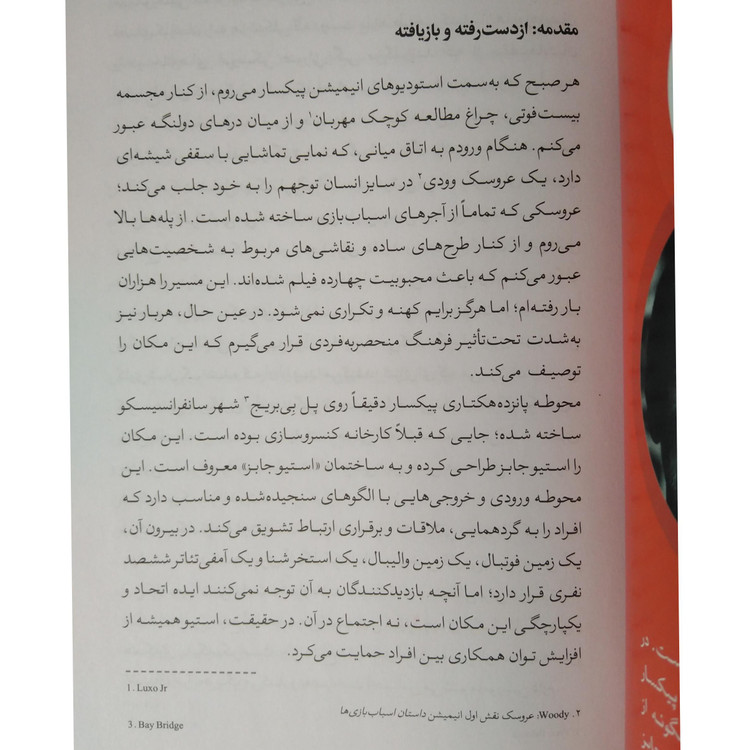 مقدمه: ازدست‌رفته و بازیافته
هر صبح که به‌سمت استودیوهای انیمیشن پیکسار می‌روم، از کنار مجسمه
بیست‌فوتی، چراغ مطالعه کوچک مهربان۱ و از میان درهای دولنگه عبور
می‌کنم. هنگام ورودم به اتاق میانی، که نمایی تماشایی با سقفی شیشه‌ای
دارد، یک عروسک وودی۲ در سایز انسان توجهم را به خود جلب می‌کند؛
عروسکی که تماماً از آجرهای اسباب‌بازی ساخته شده است. از پله‌ها بالا
می‌روم و از کنار طرح‌های ساده و نقاشی‌های مربوط به شخصیت‌هایی
عبور می‌کنم که باعث محبوبیت چهارده فیلم شده‌اند. این مسیر را هزاران
بار رفته‌ام؛ اما هرگز برایم کهنه و تکراری نمی‌شود. در عین حال، هربار نیز
به‌شدت تحت‌تأثیر فرهنگ منحصربه‌فردی قرار می‌گیرم که این مکان را
توصیف می‌کند.
محوطه پانزده‌هکتاری پیکسار دقیقاً روی پل بی‌بریج۳ شهر سانفرانسیسکو
ساخته شده؛ جایی که قبلاً کارخانه کنسروسازی بوده است. این مکان
را استیو جابز طراحی کرده و به ساختمان «استیو جابز» معروف است. این
محوطه ورودی و خروجی‌هایی با الگوهای سنجیده‌شده و مناسب دارد که
افراد را به گردهمایی، ملاقات و برقراری ارتباط تشویق می‌کند. در بیرون آن،
یک زمین فوتبال، یک زمین والیبال، یک استخر شنا و یک آمفی‌تئاتر ششصد
نفری قرار دارد؛ اما آنچه بازدیدکنندگان به آن توجه نمی‌کنند ایده اتحاد و
یکپارچگی این مکان است، نه اجتماع در آن. در حقیقت، استیو همیشه از
افزایش توان همکاری بین افراد حمایت می‌کرد.
1. Luxo Jr
۲. Woody: عروسک نقش اول انیمیشن داستان اسباب‌بازی‌ها
3. Bay Bridge